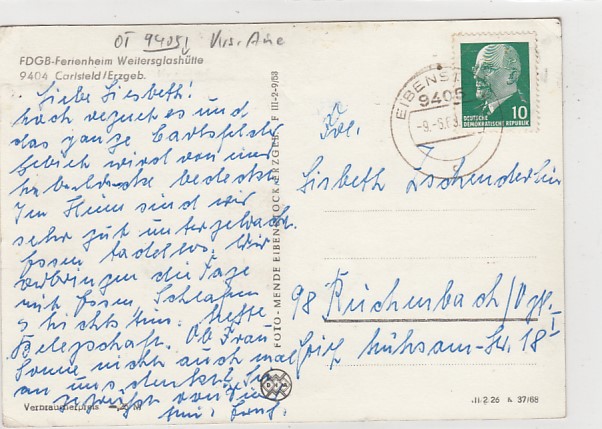 OT 9405 Krs. Aue
FDGB-Ferienheim Weitersglashütte
9404 Carlsfeld/Erzgeb.
Liebe Lisbeth!
Noch regnet es und
das ganze Carlsfelder
Gebiet wird von einer
bedeckt
Im Heim sind wir
sehr gut untergebracht.
Essen tadellos. Wir
verbringen die Tage
mit Essen, Schlafen
nichts tun. Nette
Belegschaft. Ob Frau
Sonne nicht auch mal
an uns denkt? Es
von
Verbraucherpreis
FOTO-MENDE EIBENSTOCK/ERZGEB. F III-2-9/68
EIBENST
9405
-9.-5.69
DEUTSCHE
DEMOKRATISCHE REPUBLIK
10
Frl.
Lisbeth Zschenderlein
98 Reichenbach/Vgtl.
I
Erich Mühsam-Str. 18
.II/2/26 A 37/68